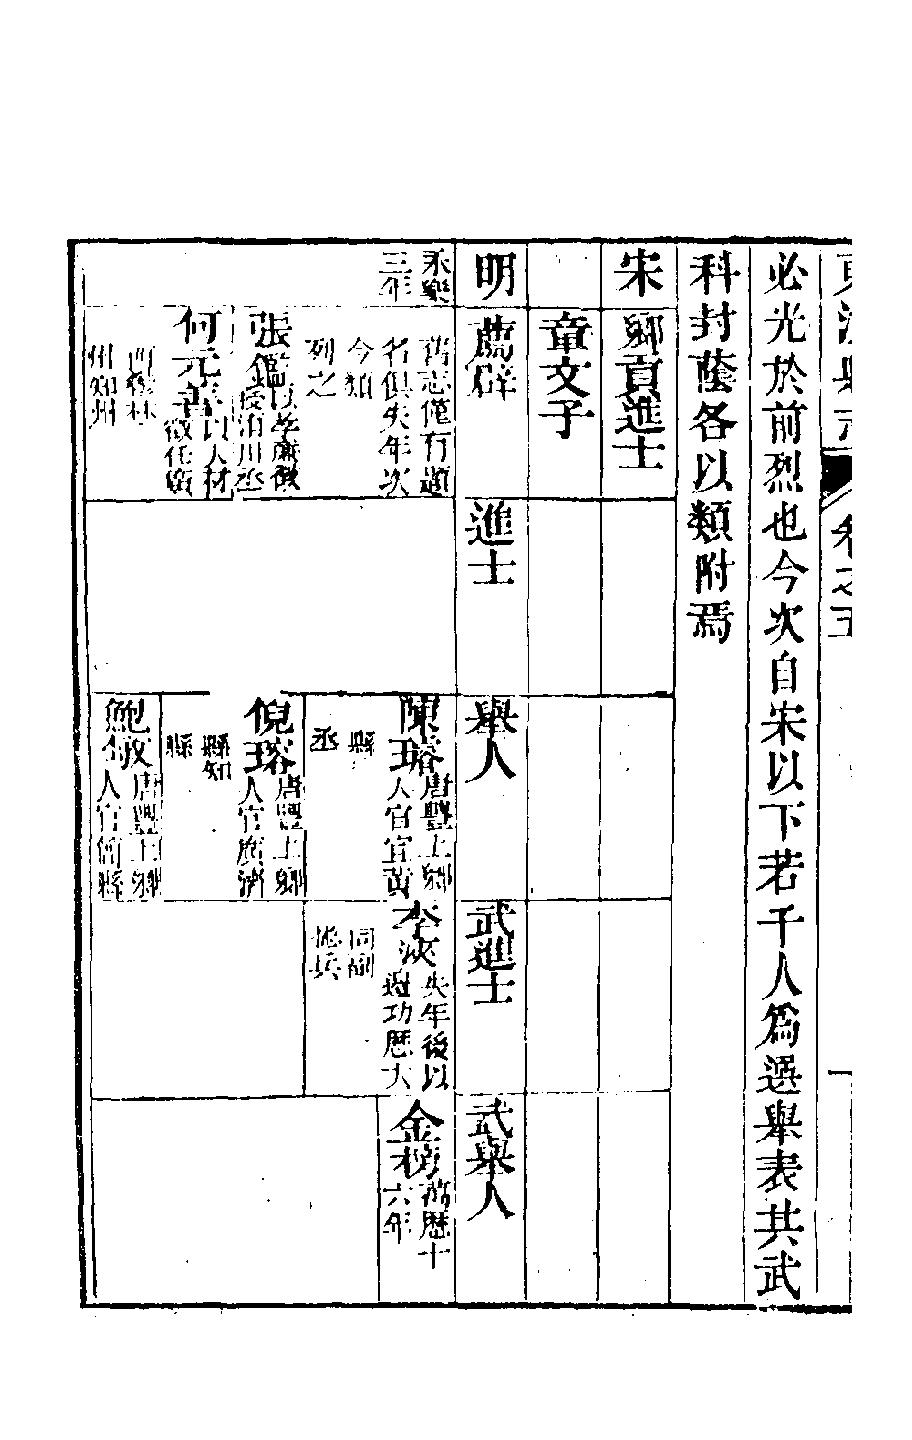 卷之五
必光於前烈也今次自宋以下若千人爲選舉表其武
科封蔭各以類附焉
宋
鄉貢進士
童文子
明
薦辟
進士
舉人
武進士
武舉人
永樂
三年
舊志僅有題
名俱失年次
今類
列之
張鑑
以孝廉徵
授淄川丞
何元善
以人材
徵任廣
西鬱林
州知州
陳瑢
唐豐上鄉
人官宜黃
縣
丞
倪瑢
唐豐上鄉
人官廣濟
縣知
縣
鮑敏
唐豐上鄉
人官
縣
李
失年後以
邊功歷大
同副
總兵
金榜
萬歷十
六年